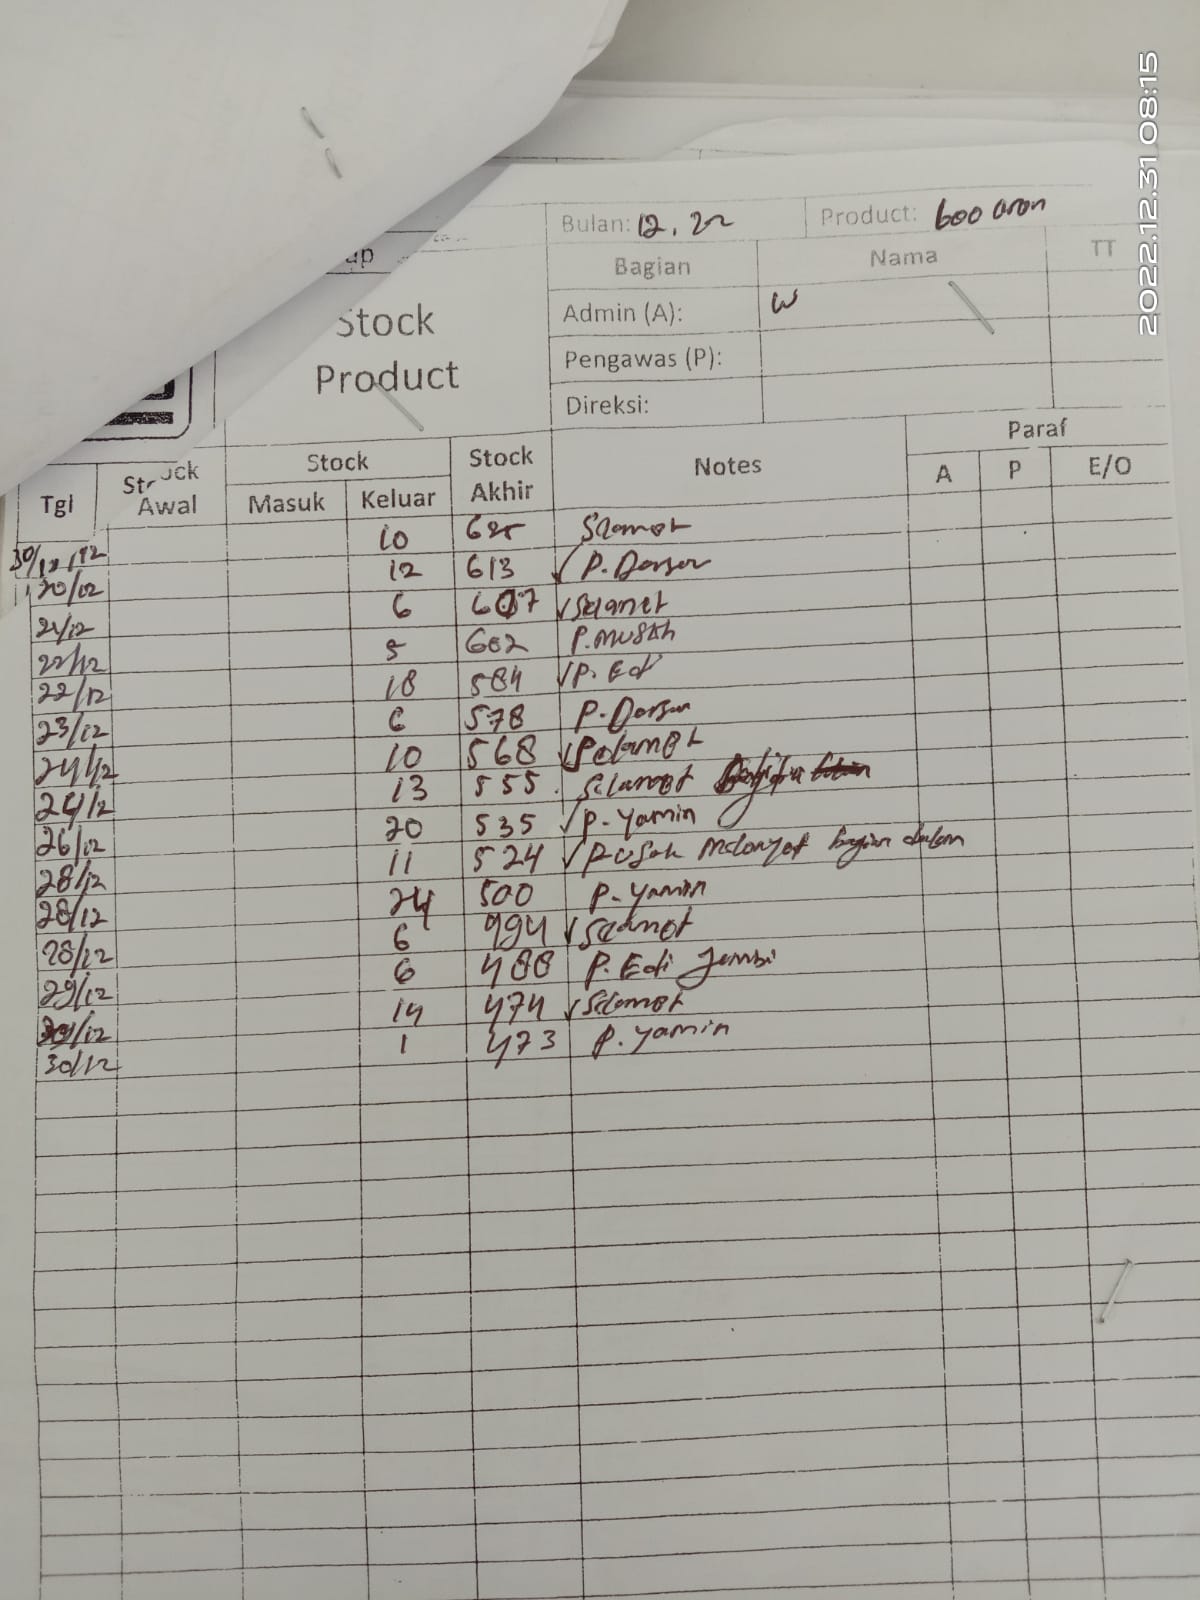 2022.12.31 08:15
Bulan: 12.22 Product: 600 aron
up
Bagian Nama TT
Stock
Product
Admin (A): W
Pengawas (P):
Direksi:
Tgl Stock Awal Stock Masuk Keluar Stock Akhir Notes Paraf A P E/O
10 625 Slamet
20/12 12 613 ✓ P. Darsun
21/12 6 607 ✓ Selamet
22/12 5 602 P. Musah
22/12 18 584 ✓ P. Edi
23/12 6 578 P. Darsun
24/12 10 568 ✓ Selamet
24/12 13 555 Selamet
26/12 20 535 ✓ P. Yamin
28/12 11 524 ✓ bagian dalam
28/12 24 500 P. Yamin
28/12 6 494 ✓ Selamet
29/12 6 488 P. Edi Jambi
30/12 14 474 ✓ Selamet
30/12 1 473 P. Yamin